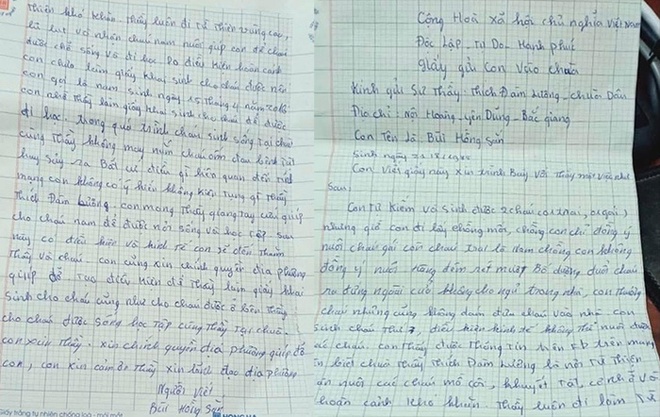 Cộng Hoà xã hội chủ nghĩa Việt Nam
Độc Lập - Tự Do - Hạnh phúc
Giấy gửi Con Vào chùa
Kính gửi Sư Thầy. Thích Đàm Hương - chùa
Địa chỉ: Nội Hoàng - yên Dũng - Bắc giang
Con Tên là Bùi Hồng Sản
Sinh ngày
Con viết giấy này xin trình Bày với Thầy một việc như
Sau.
Con Tư kiếm và sinh được 2 cháu (01 trai, 01 gái)
nhưng giờ con đi lấy chồng mới, chồng con chỉ đồng ý
nuôi cháu gái còn cháu trai là Nam chồng con không
đồng ý nuôi hàng đêm rét mướt Bố dượng đuổi cháu
ra đứng ngoài cửa không cho ngủ trong nhà, con thương
cháu nhưng cũng không dám đưa cháu vào nhà con
sinh cháu thứ 7, điều kiện kinh tế không thể nuôi được
các cháu. con thấy được Thông tin trên FB trên mạng
biết chùa Thầy Thích Đàm Hương là nơi từ Thiện
nuôi các cháu mồ côi, khuyết tật, cơ nhỡ và
hoàn cảnh khó khăn. Thầy luôn đi làm Từ
Thiện khó khăn. Thầy luôn đi từ thiện vùng cao,
lũ lụt và nhận cháu nam nuôi giúp con để cháu
được chỗ sống và đi học. Do điều kiện hoàn cảnh
con chưa làm giấy khai sinh cho cháu được nên
con gọi là năm sinh ngày 10 tháng 4 năm
con nhờ Thầy làm giấy khai sinh cho cháu để được
đi học. trong quá trình cháu sinh sống tại chùa
cùng Thầy không may mắn cháu ốm đau bệnh tật
hay sảy ra Bất cứ điều gì liên quan đến tính
mạng con không có ý kiến không kiện tụng gì Thầy
Thích Đàm Hương. con mong Thầy giang tay cứu giúp
cho cháu nam để được nơi sống và học tập. sau
này có điều kiện và kinh tế con sẽ đến thăm
Thầy và cháu. con cũng xin chính quyền địa phương
giúp đỡ tạo điều kiện để Thầy làm giấy khai
sinh cho cháu cũng như cho cháu được ở bên Thầy
cho cháu được sống học tập cùng Thầy tại chùa.
con xin Thầy. xin chính quyền địa phương giúp đỡ
con, con xin cảm ơn Thầy xin lãnh đạo địa phương
Người viết
Bùi Hồng Sản